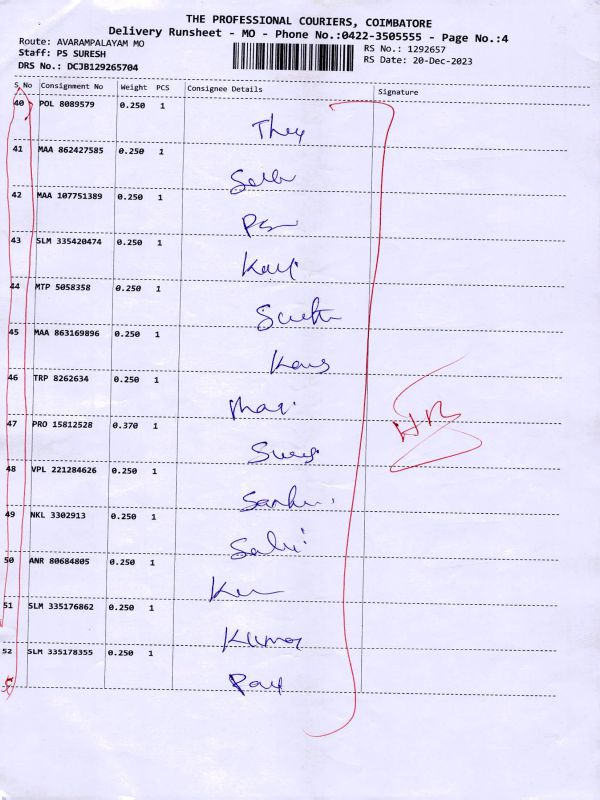 THE PROFESSIONAL COURIERS, COIMBATORE
Delivery Runsheet - MO - Phone No.:0422-3505555 - Page No.:4
Route: AVARAMPALAYAM MO
Staff: PS SURESH
DRS No.: DCJB129265704
RS No.: 1292657
RS Date: 20-Dec-2023
S No Consignment No Weight PCS Consignee Details Signature
40 POL 8089579 0.250 1
41 MAA 862427585 0.250 1
42 MAA 107751389 0.250 1
43 SLM 335420474 0.250 1
44 MTP 5058358 0.250 1
45 MAA 863169896 0.250 1
46 TRP 8262634 0.250 1
47 PRO 15812528 0.370 1
48 VPL 221284626 0.250 1
49 NKL 3302913 0.250 1
50 ANR 80684805 0.250 1
51 SLM 335176862 0.250 1
Kumar
52 SLM 335178355 0.250 1